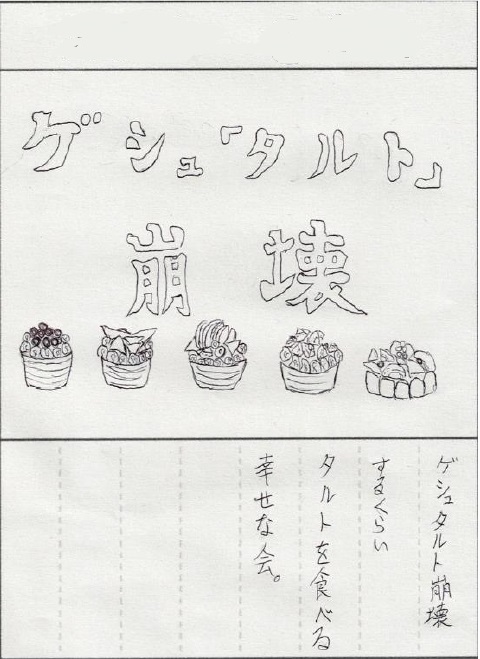 ゲシュ「タルト」
崩壊
ゲシュタルト崩壊
するくらい
タルトを食べる
幸せな会。